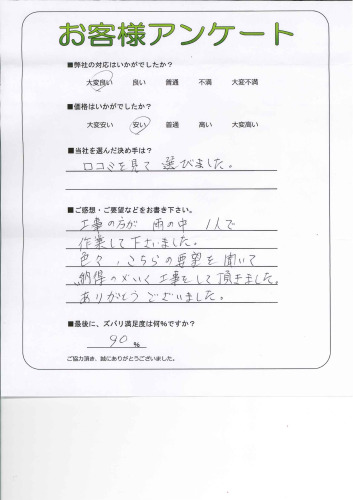 お客様アンケート
■弊社の対応はいかがでしたか?
大変良い 良い 普通 不満 大変不満
■価格はいかがですか?
大変安い 安い 普通 高い 大変高い
■当社を選んだ決め手は?
口コミを見て 選びました。
■ご感想・ご要望などをお書き下さい。
工事の方が 雨の中 1人で
作業して下さいました。
色々、こちらの要望を聞いて
納得のいく工事をして頂きました。
ありがとうございました。
■最後に、ズバリ満足度は何%ですか?
90 %
ご協力頂き、誠にありがとうございました。